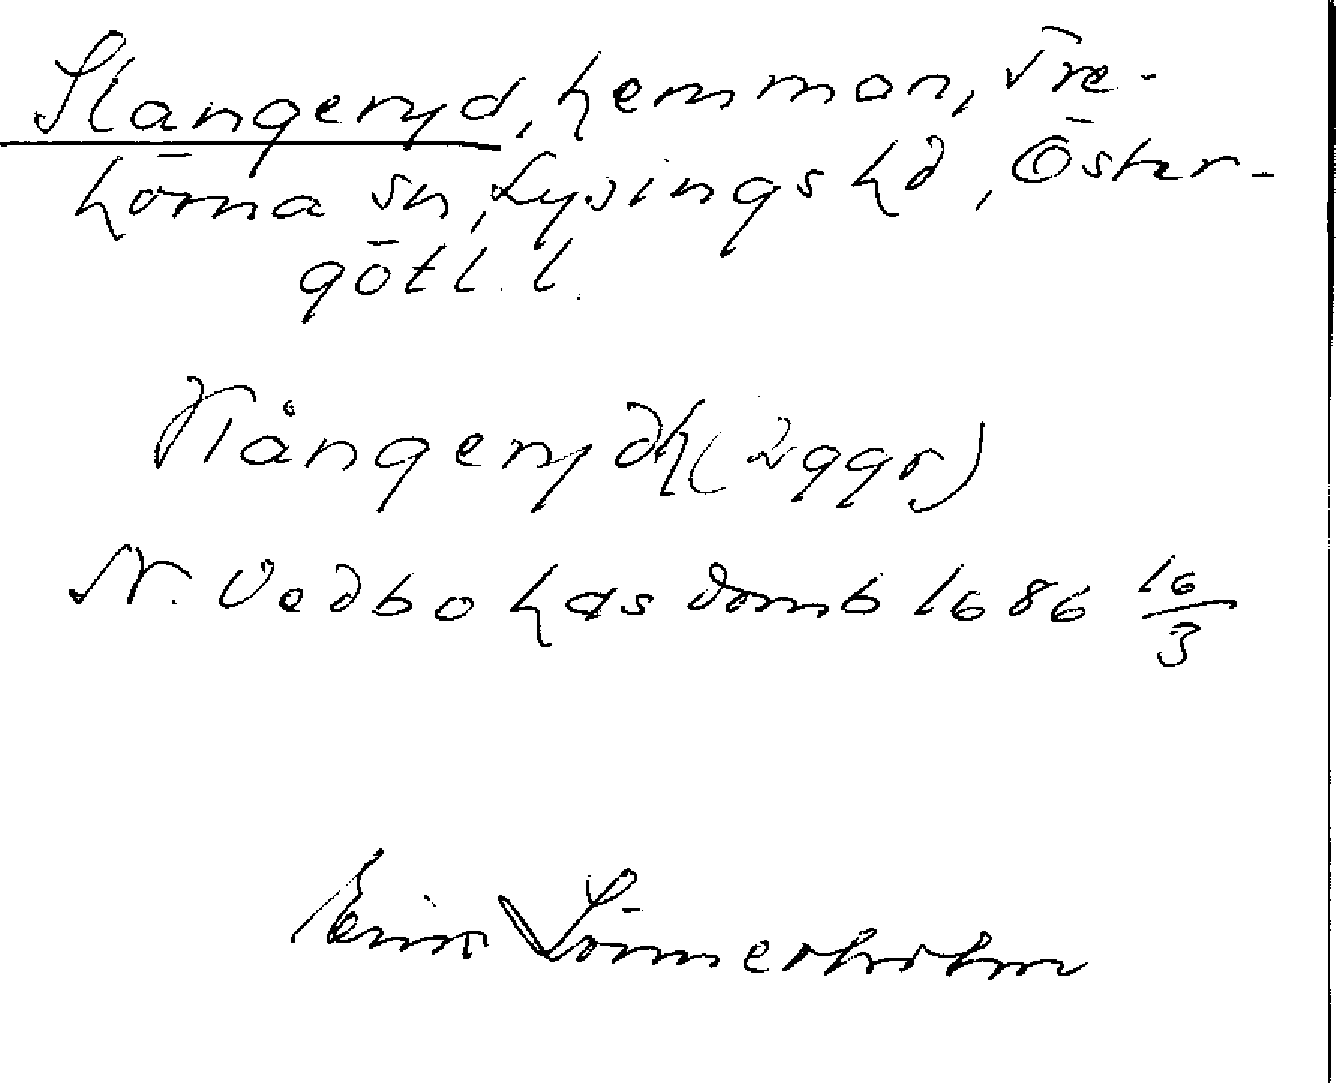 Slangeryd, hemman, Tre-
hörna sn, Lysings hd, Öster-
götl. l.
Slångerydh (2 ggr)
N. Vedbo hds domb 1686 16/3
Lönnerholm